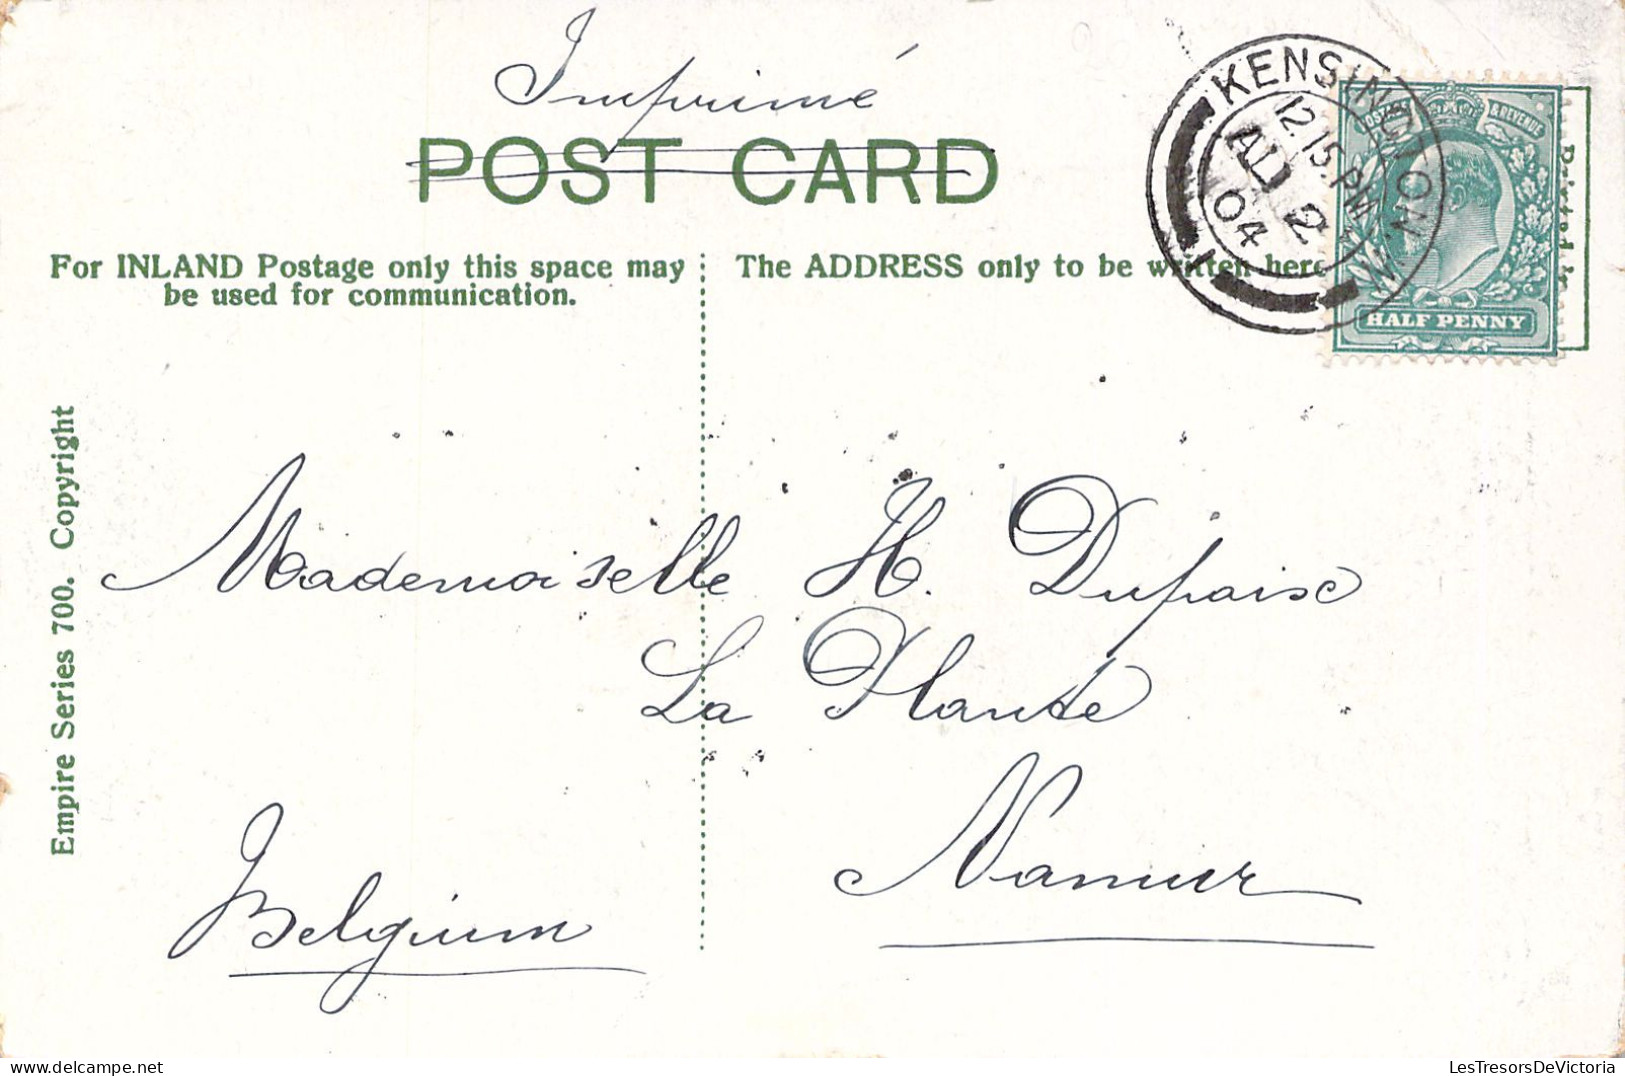 Imprimé
POST CARD
For INLAND Postage only this space may
be used for communication.
The ADDRESS only to be written here
KENSINGTON W.
12 15 PM
AU 2
04
1
POSTAGE & REVENUE
HALF PENNY
Printed in
Empire Series 700. Copyright
Mademoiselle H. Dufaise
La Plante
Namur
Belgium
LesTresorsDeVictoria